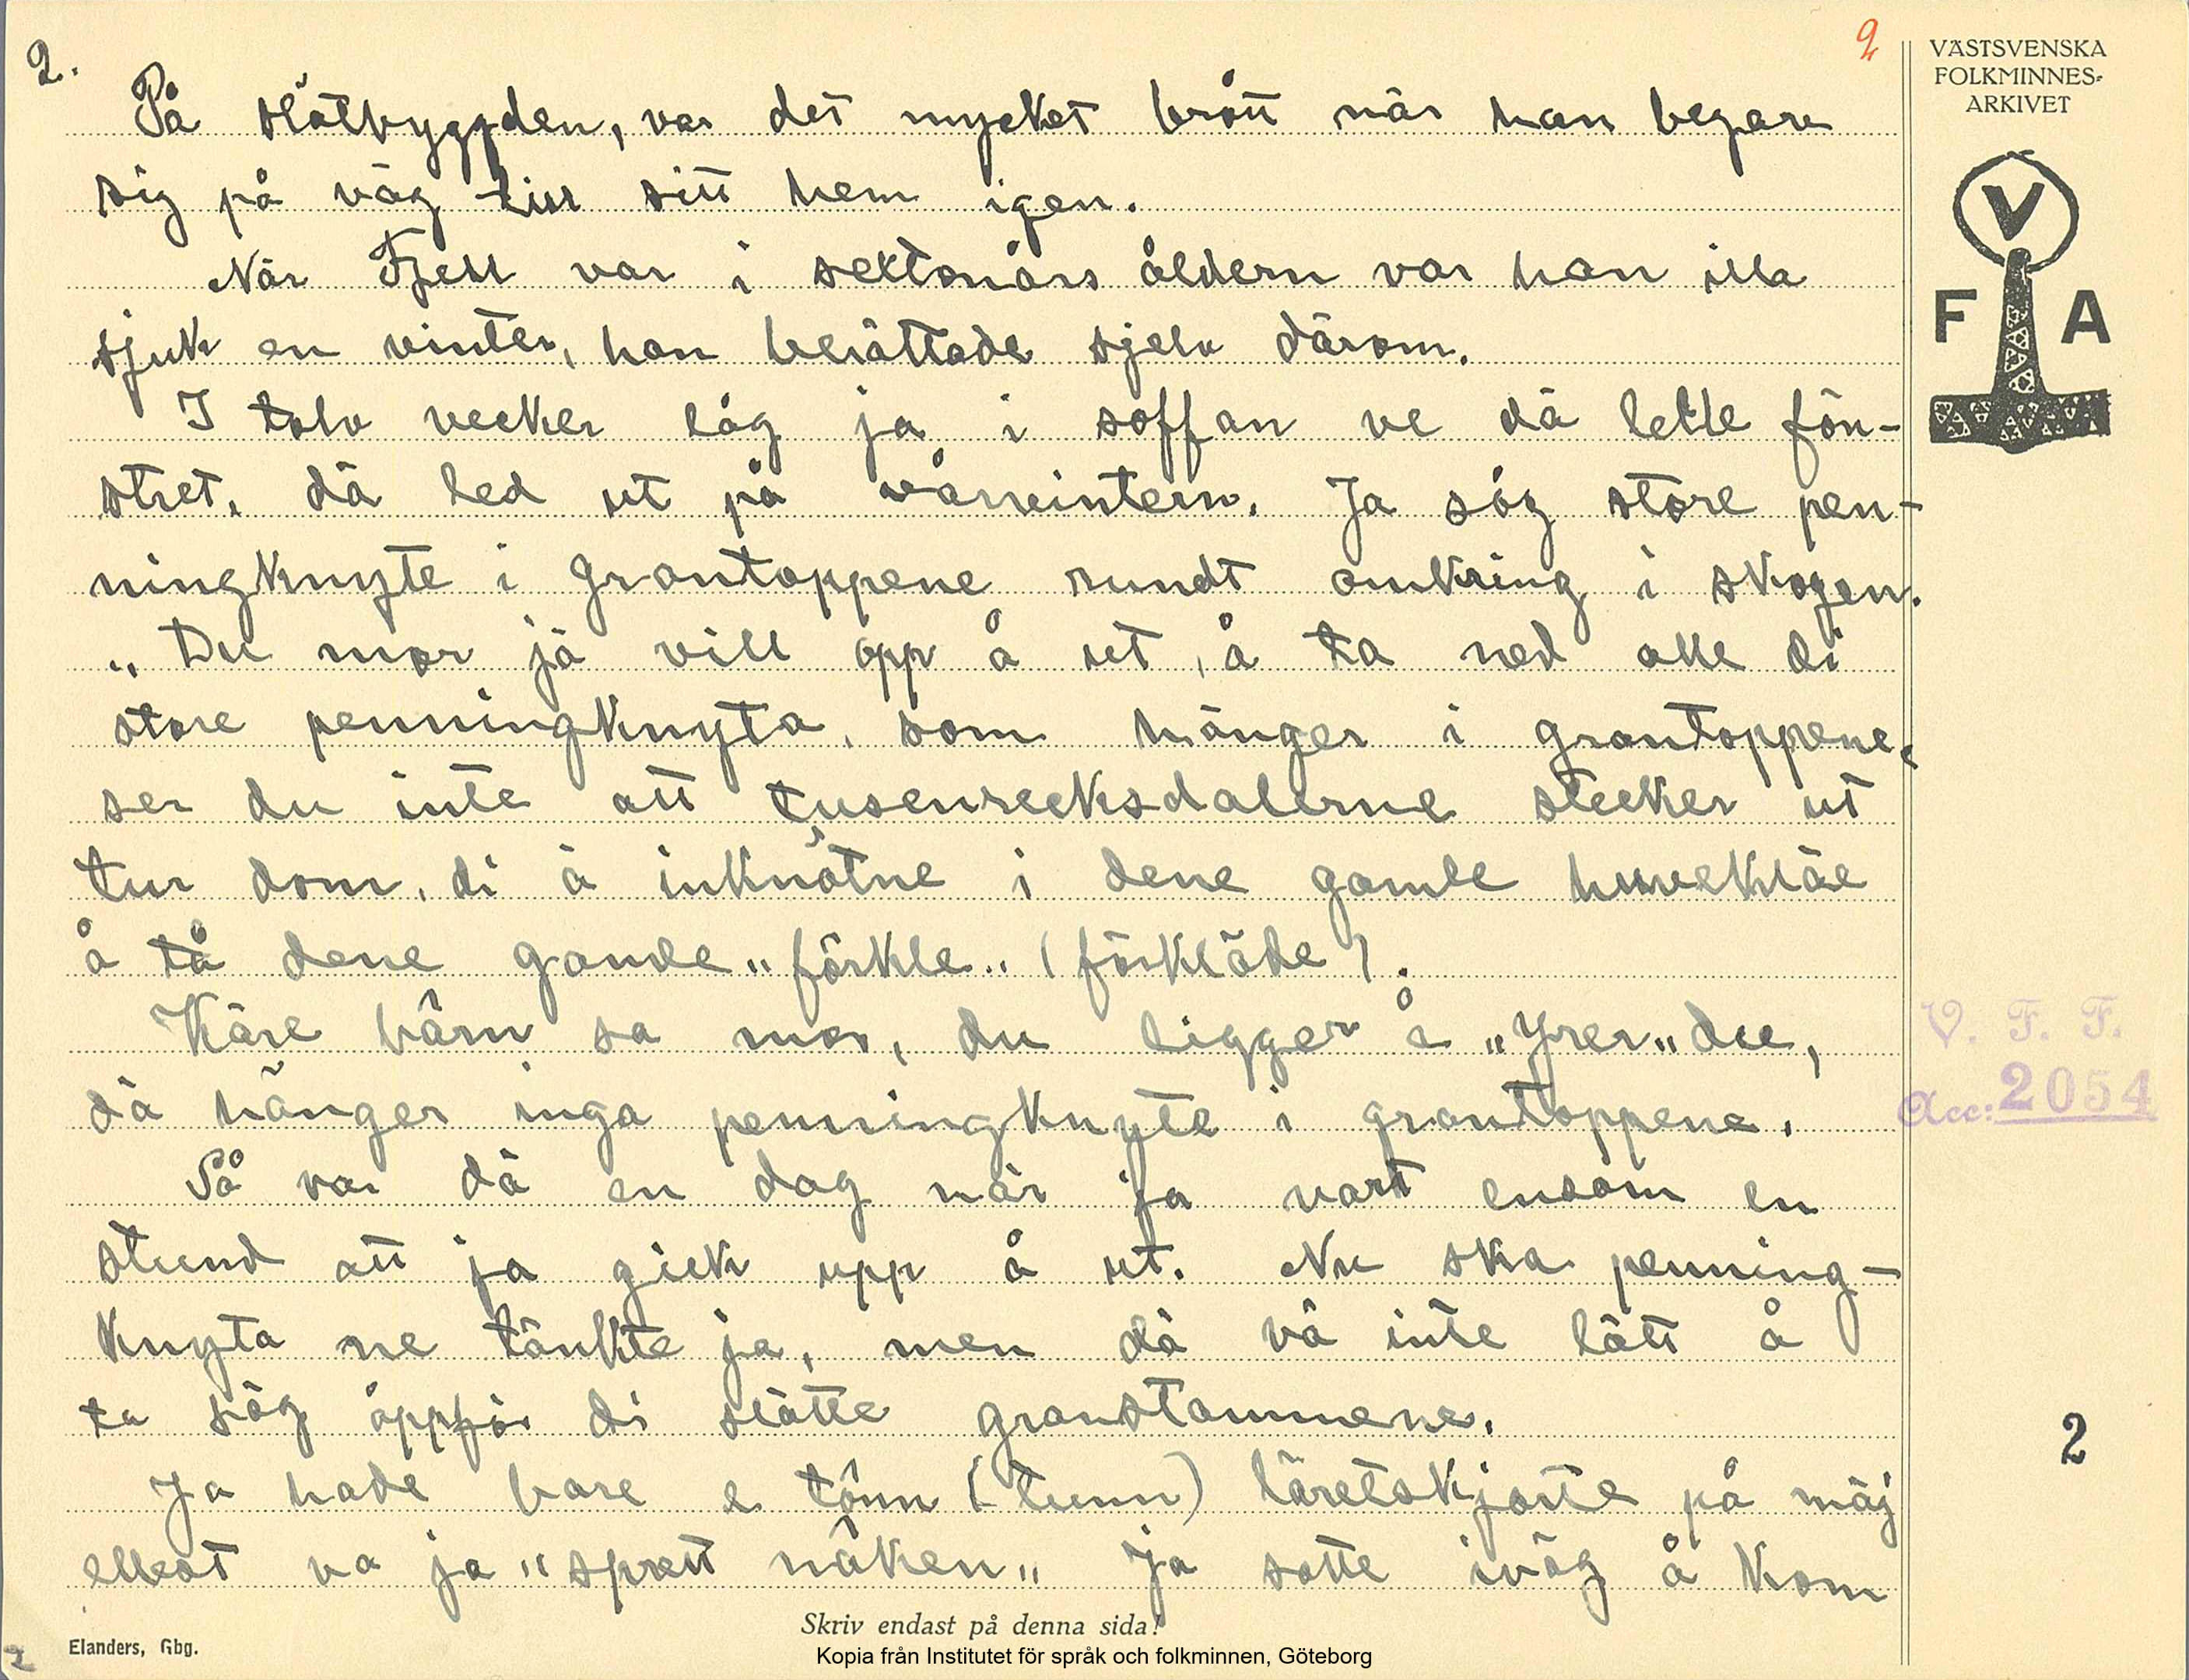 2.
2
VÄSTSVENSKA
FOLKMINNES-
ARKIVET
V
F A
På slätbyggden, var det mycket brått när han begave
sig på väg till sitt hem igen.
När Fjell var i sextonårs åldern var han illa
sjuk en vinter, han berättade sjelv därom.
I tolv vecker låg ja i soffan ve dä lelle fön-
stret. dä led ut på vårveintern. Ja såg store pen-
ningknyte i grantoppene rundt omkring i skogen.
„Du mor jä vill opp å ut, å ta ned alle di
store penningknyta, som hänger i grantoppene,
ser du inte att tusenrecksdalerne stecker ut
tur dom, di ä inknôtne i dene gamle huvekläe
å tå dene gamle „förkle„ (förkläde).
Käre bârn sa mor, du ligger å „yrer„ du,
dä hänger inga penningknyte i grantoppene.
Så var dä en dag när ja vart ensom en
stund att ja gick upp å ut. Nu ska penning-
knyta ne tänkte ja, men dä vâ inte lätt å
ta säg åppför di slätte granstammene.
Ja hade bare e tônn (tunn) läretskjorte på mäj
ellest va ja „sprett nâken„ Ja satte iväg å kom
V. F. F.
Acc: 2054
2
Skriv endast på denna sida!
Elanders, Gbg.
Kopia från Institutet för språk och folkminnen, Göteborg
2